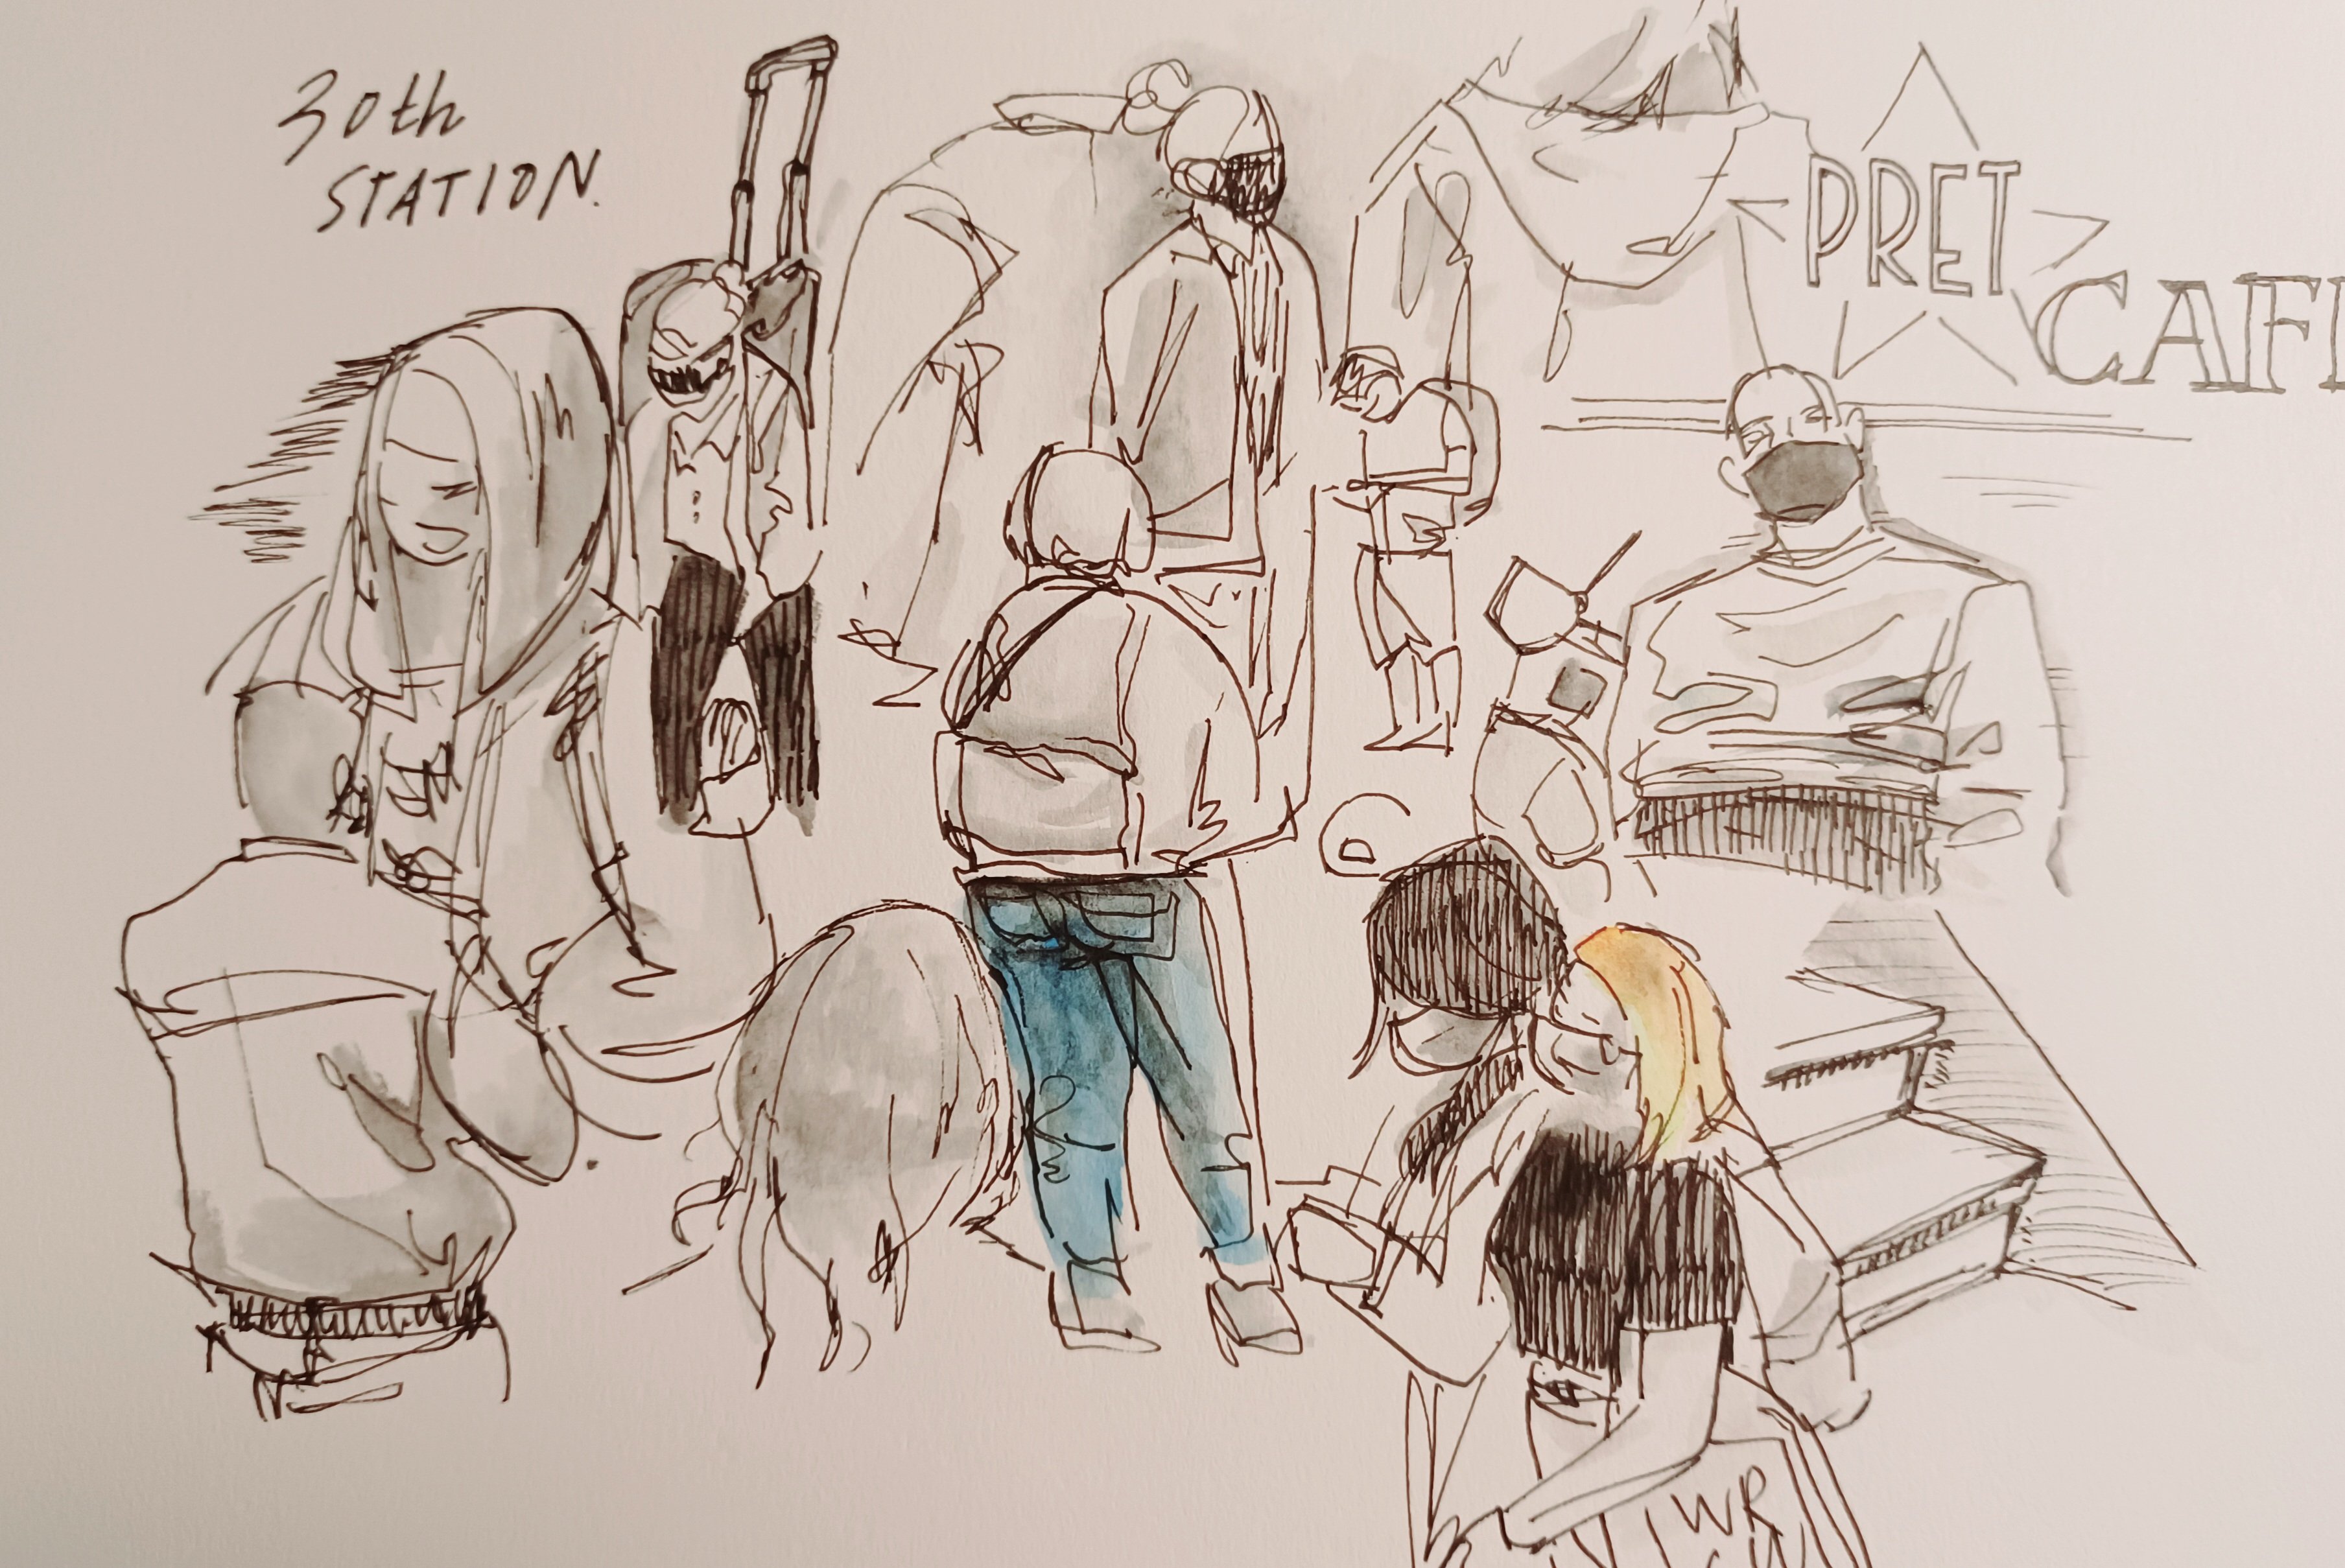 30th
STATION.
PRET
CAF
WR